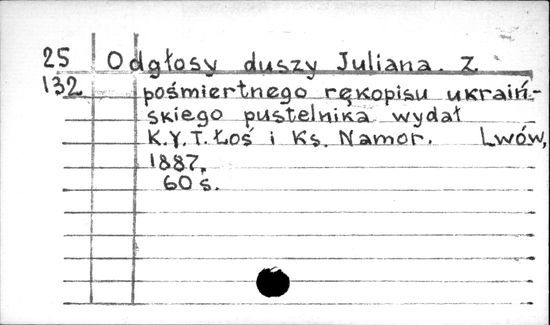 25 Odgłosy duszy Juliana. Z
132 pośmiertnego rękopisu ukraiń-
skiego pustelnika wydał
K.Y.T. Łoś i Ks. Namor. Lwów,
1887.
60 s.